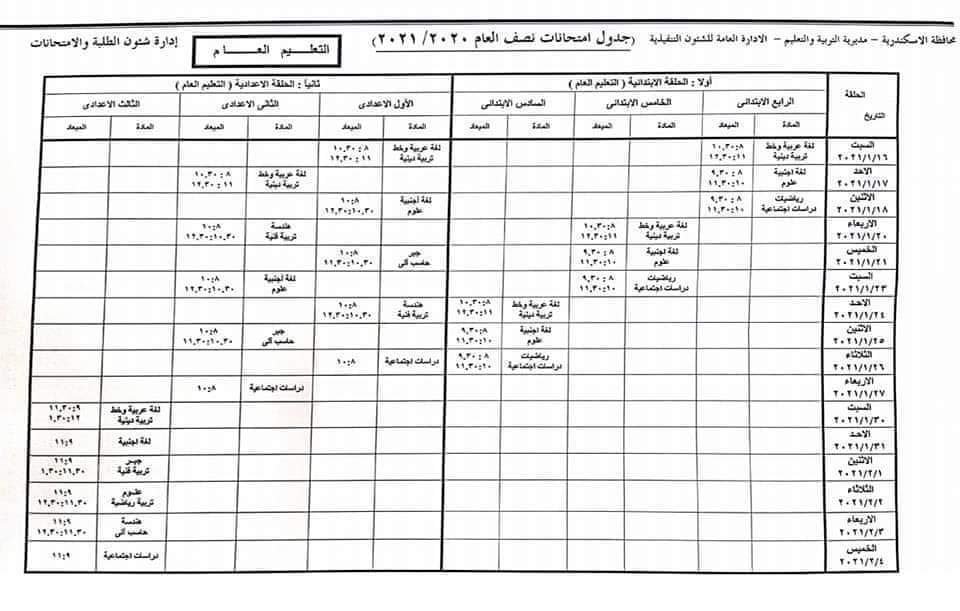 محافظة الاسكندرية – مديرية التربية والتعليم – الادارة العامة للشئون التنفيذية (جدول امتحانات نصف العام ٢٠٢٠/ ٢٠٢١) التعليم العام إدارة شئون الطلبة والامتحانات
الحلقة أولا : الحلقة الابتدائية ( التعليم العام ) ثانيا : الحلقة الاعدادية ( التعليم العام )
التاريخ الرابع الابتدائى الخامس الابتدائى السادس الابتدائى الأول الاعدادى الثانى الاعدادى الثالث الاعدادى
المادة الميعاد المادة الميعاد المادة الميعاد المادة الميعاد المادة الميعاد المادة الميعاد
السبت لغة عربية وخط ٨:١٠,٣٠ لغة عربية وخط ٨ : ١٠,٣٠
٢٠٢١/١/١٦ تربية دينية ١١:١٢,٣٠ تربية دينية ١١ : ١٢,٣٠
الاحد لغة اجنبية ٨ : ٩,٣٠ لغة عربية وخط ٨ : ١٠,٣٠
٢٠٢١/١/١٧ علوم ١٠:١١,٣٠ تربية دينية ١١ : ١٢,٣٠
الاثنين رياضيات ٨ : ٩,٣٠ لغة أجنبية ٨:١٠
٢٠٢١/١/١٨ دراسات اجتماعية ١٠:١١,٣٠ علوم ١٠,٣٠:١٢,٣٠
الاربعاء لغة عربية وخط ٨:١٠,٣٠ هندسة ٨:١٠
٢٠٢١/١/٢٠ تربية دينية ١١:١٢,٣٠ تربية فنية ١٠,٣٠:١٢,٣٠
الخميس لغة اجنبية ٨ : ٩,٣٠ جبر ٨:١٠
٢٠٢١/١/٢١ علوم ١٠:١١,٣٠ حاسب آلى ١٠,٣٠:١١,٣٠
السبت رياضيات ٨ : ٩,٣٠ لغة أجنبية ٨:١٠
٢٠٢١/١/٢٣ دراسات اجتماعية ١٠:١١,٣٠ علوم ١٠,٣٠:١٢,٣٠
الاحد لغة عربية وخط ٨:١٠,٣٠ هندسة ٨:١٠
٢٠٢١/١/٢٤ تربية دينية ١١:١٢,٣٠ تربية فنية ١٠,٣٠:١٢,٣٠
الاثنين لغة اجنبية ٨ : ٩,٣٠ جبر ٨:١٠
٢٠٢١/١/٢٥ علوم ١٠:١١,٣٠ حاسب آلى ١٠,٣٠:١١,٣٠
الثلاثاء رياضيات ٨ : ٩,٣٠ دراسات اجتماعية ٨:١٠
٢٠٢١/١/٢٦ دراسات اجتماعية ١٠:١١,٣٠
الاربعاء دراسات اجتماعية ٨:١٠
٢٠٢١/١/٢٧
السبت لغة عربية وخط ٩:١١,٣٠
٢٠٢١/١/٣٠ تربية دينية ١٢:١,٣٠
الاحد لغة اجنبية ٩:١١
٢٠٢١/١/٣١
الاثنين جبر ٩:١١
٢٠٢١/٢/١ تربية فنية ١١,٣٠:١,٣٠
الثلاثاء علوم ٩:١١
٢٠٢١/٢/٢ تربية رياضية ١١,٣٠:١٢,٣٠
الاربعاء هندسة ٩:١١
٢٠٢١/٢/٣ حاسب آلى ١١,٣٠:١٢,٣٠
الخميس دراسات اجتماعية ٩:١١
٢٠٢١/٢/٤